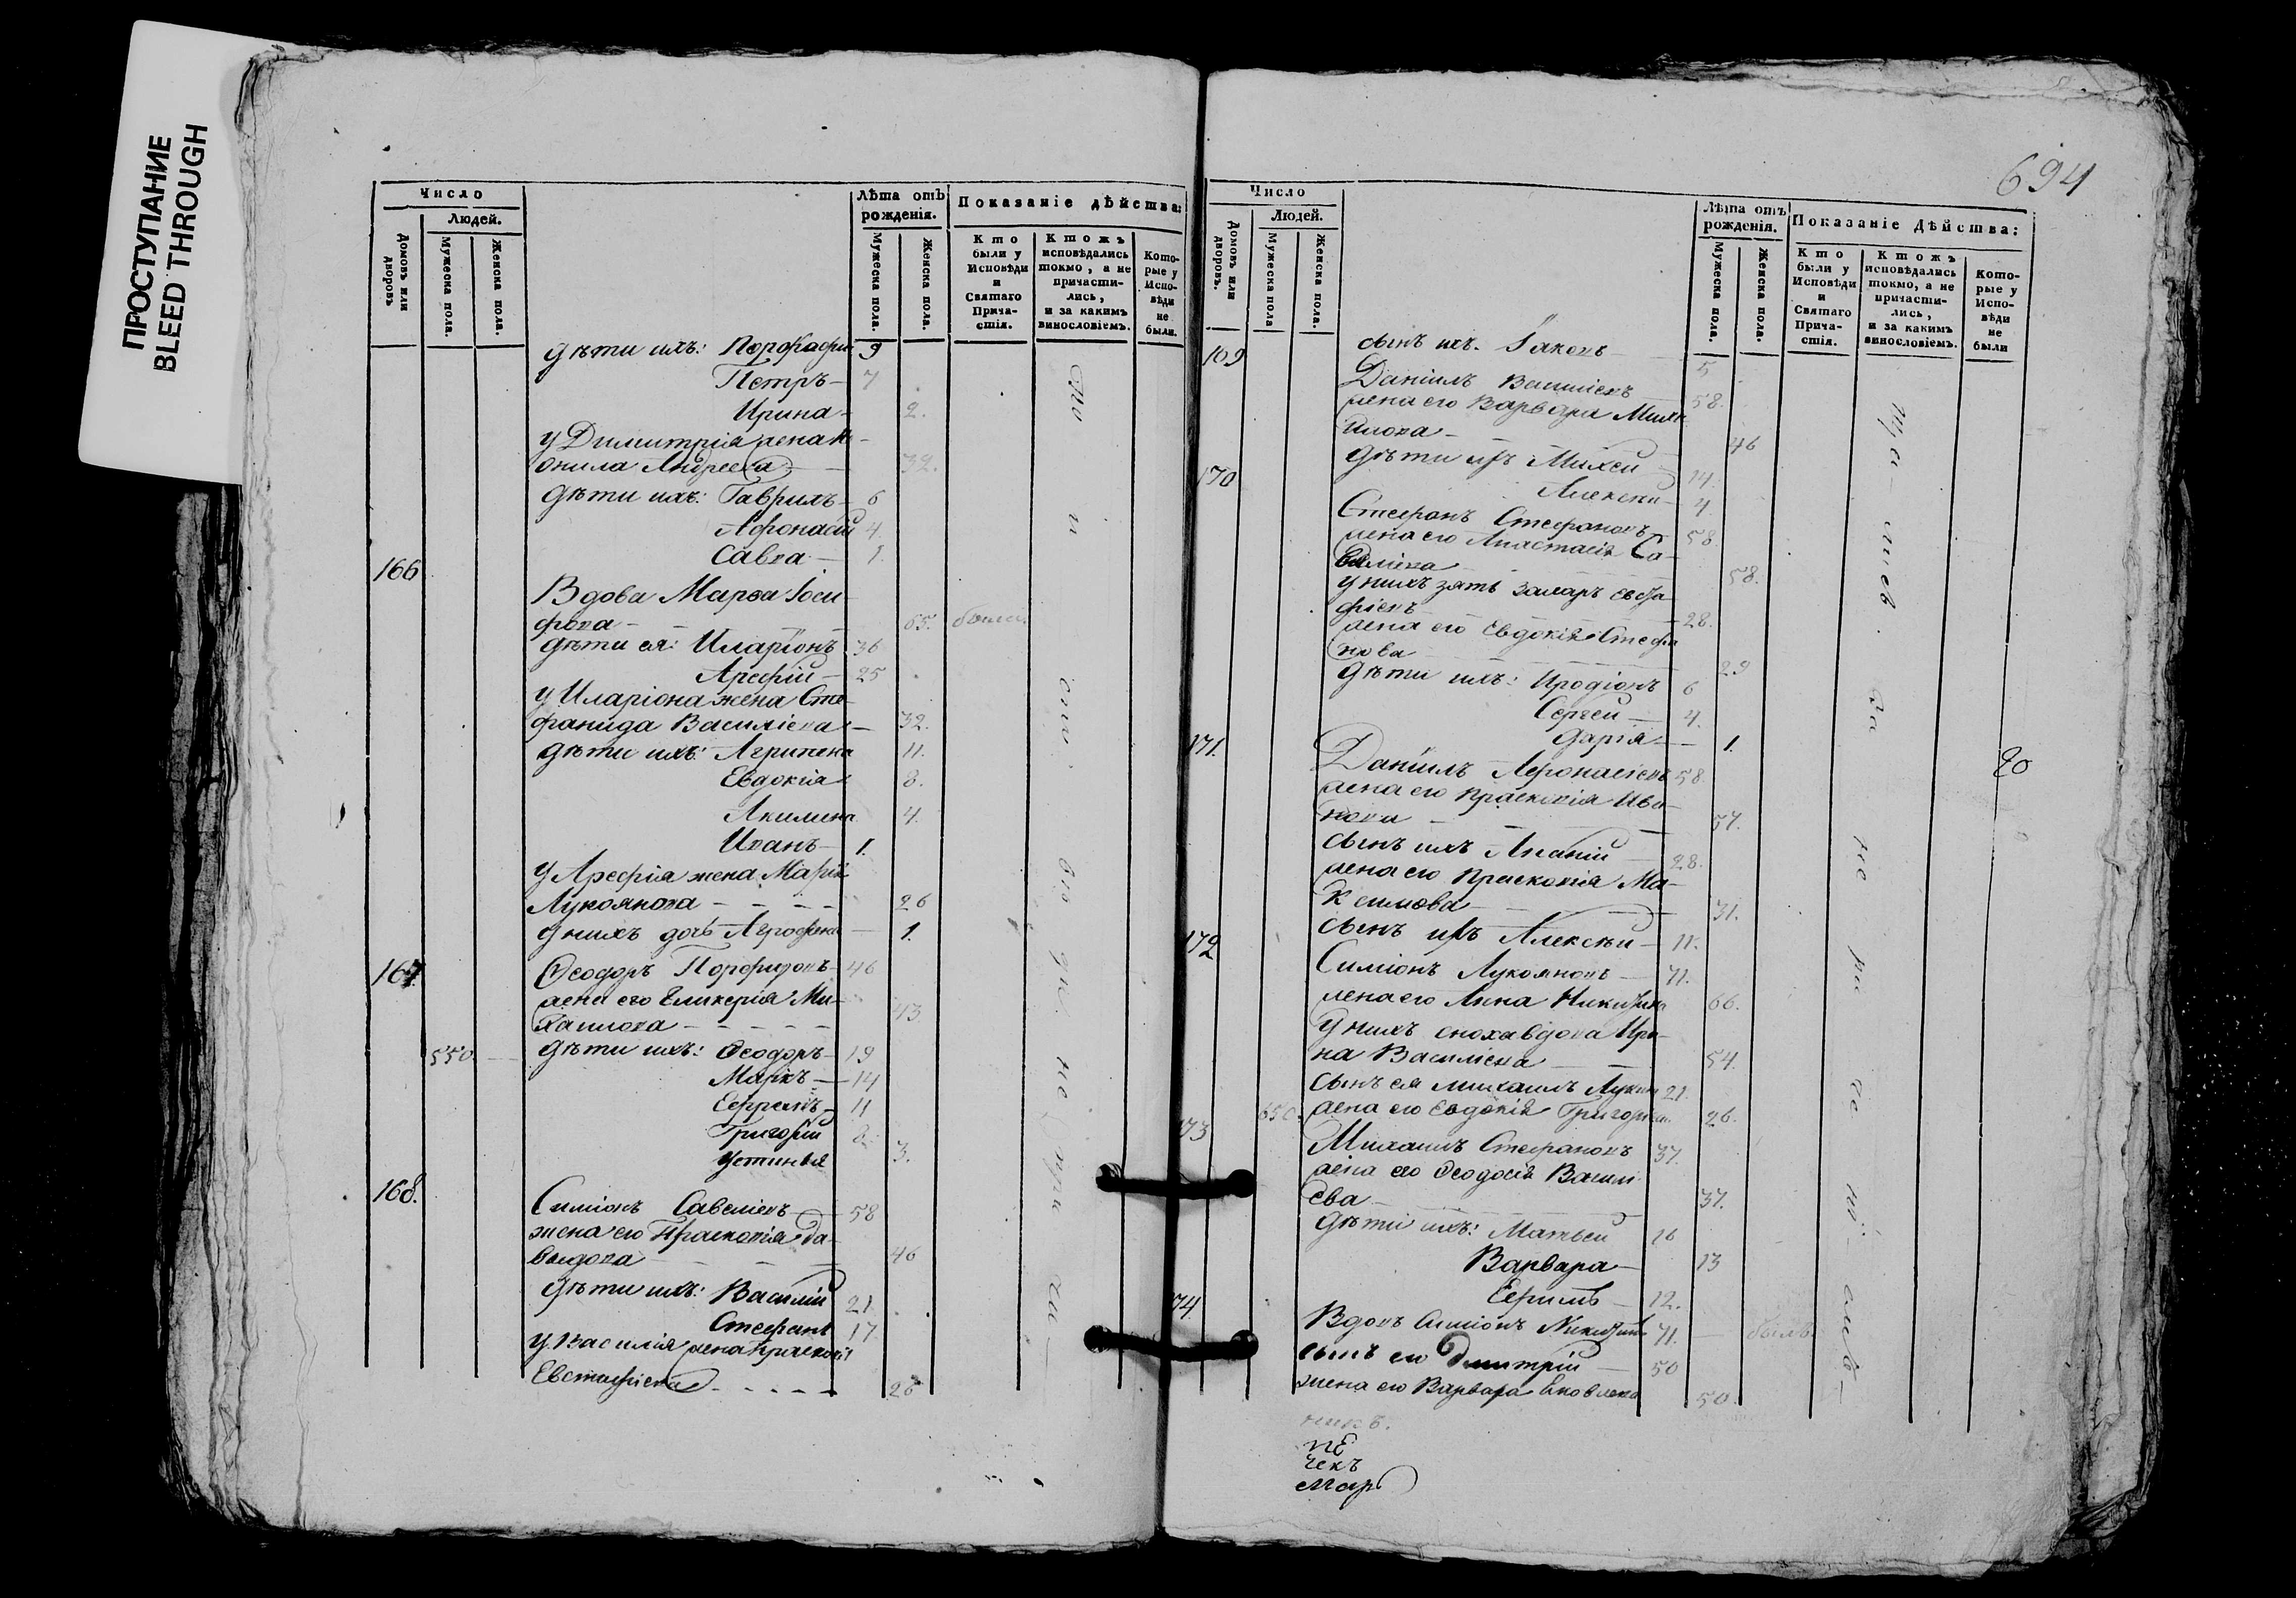 ПРОСТУПАНИЕ
BLEED THROUGH
Число
Людей.
Домовъ или дворовъ
Мужеска пола.
Женска пола.
Лѣта отъ рожденія.
Мужеска пола.
Женска пола.
Показаніе дѣйства:
Кто были у Исповѣди и Святаго Прича-стія.
Ктожъ исповѣдались токмо, а не причасти-лись, и за какимъ винословіемъ.
Кото-рые у Испо-вѣди не были.
дѣти ихъ: 9
Петръ 7
Ирина 2.
у Димитрія жена
Андреева 32.
дѣти ихъ: Гаврилъ 6
Афонасій 4
Савва 1.
166
Вдова Марѳа Іоси
фова 65. были
дѣти ея: Иларіонъ 36
Арефій 25
у Иларіона жена Сте
фанида Василіева 32.
дѣти ихъ: Агрипена 11.
Евдокіа 8.
Акилина 4.
Иванъ 1.
у Арефія жена Марія
Лукоянова 26
у нихъ дочь Агрофена 1.
167. Ѳеодоръ Порфировъ 46
жена его Гликерія Ми
хаилова 43
550 дѣти ихъ: Ѳеодоръ 19
Маркъ 14
Ефремъ 11
Григорій 8
Устинья 3.
168.
Симіонъ Савеліевъ 58
жена его Праскопія Да
выдова 46
дѣти ихъ: Василій 21
Стефанъ 17
у Василія жена Праскопія
Евстафіева 26
694
Число
Людей.
Домовъ или дворовъ.
Мужеска пола
Женска пола.
Лѣта отъ рожденія.
Мужеска пола.
Женска пола.
Показаніе дѣйства:
Кто были у Исповѣди и Святаго Прича-стія.
Ктожъ исповѣдались токмо, а не причасти-лись, и за какимъ винословіемъ.
Кото-рые у Испо-вѣди не были
169 сынъ ихъ. Іаковъ 5
Даніилъ Василіевъ 58.
жена его Варвара Миха
илова 46
дѣти ихъ Михеи 14
170
Алексѣи 4.
Стефанъ Стефановъ 58.
жена его Анастасія Са
веліева 58.
у нихъ зять Захаръ Евста
фіевъ 28.
жена его Евдокія Стефа
нова 29
дѣти ихъ: Иродіонъ 6
Сергеи 4.
Дарія 1.
171.
Даніилъ Афонасіевъ 58.
жена его Праскопія Ива
нова 57.
сынъ ихъ Ананій 28.
жена его Праскопія Ма
ксимова 31.
сынъ ихъ Алексѣи 11.
172
Симіонъ Лукояновъ 71.
жена его Анна Никитина 66.
у нихъ сноха вдова Ири
на Василіева 54.
сынъ ея Михаилъ Лукин 21.
650. жена его Евдокія Григорьева 26.
173
Михаилъ Стефановъ 37.
жена его Ѳеодосія Васил
ева 37.
дѣти ихъ: Матвей 16
Варвара 13
Ефимъ 12.
174.
Вдовъ Симіонъ Никитинъ 71. былъ
сынъ его Дмитрій 50
жена его Варвара Яковлева 50.
20
никъ.
пе
чекъ
мар